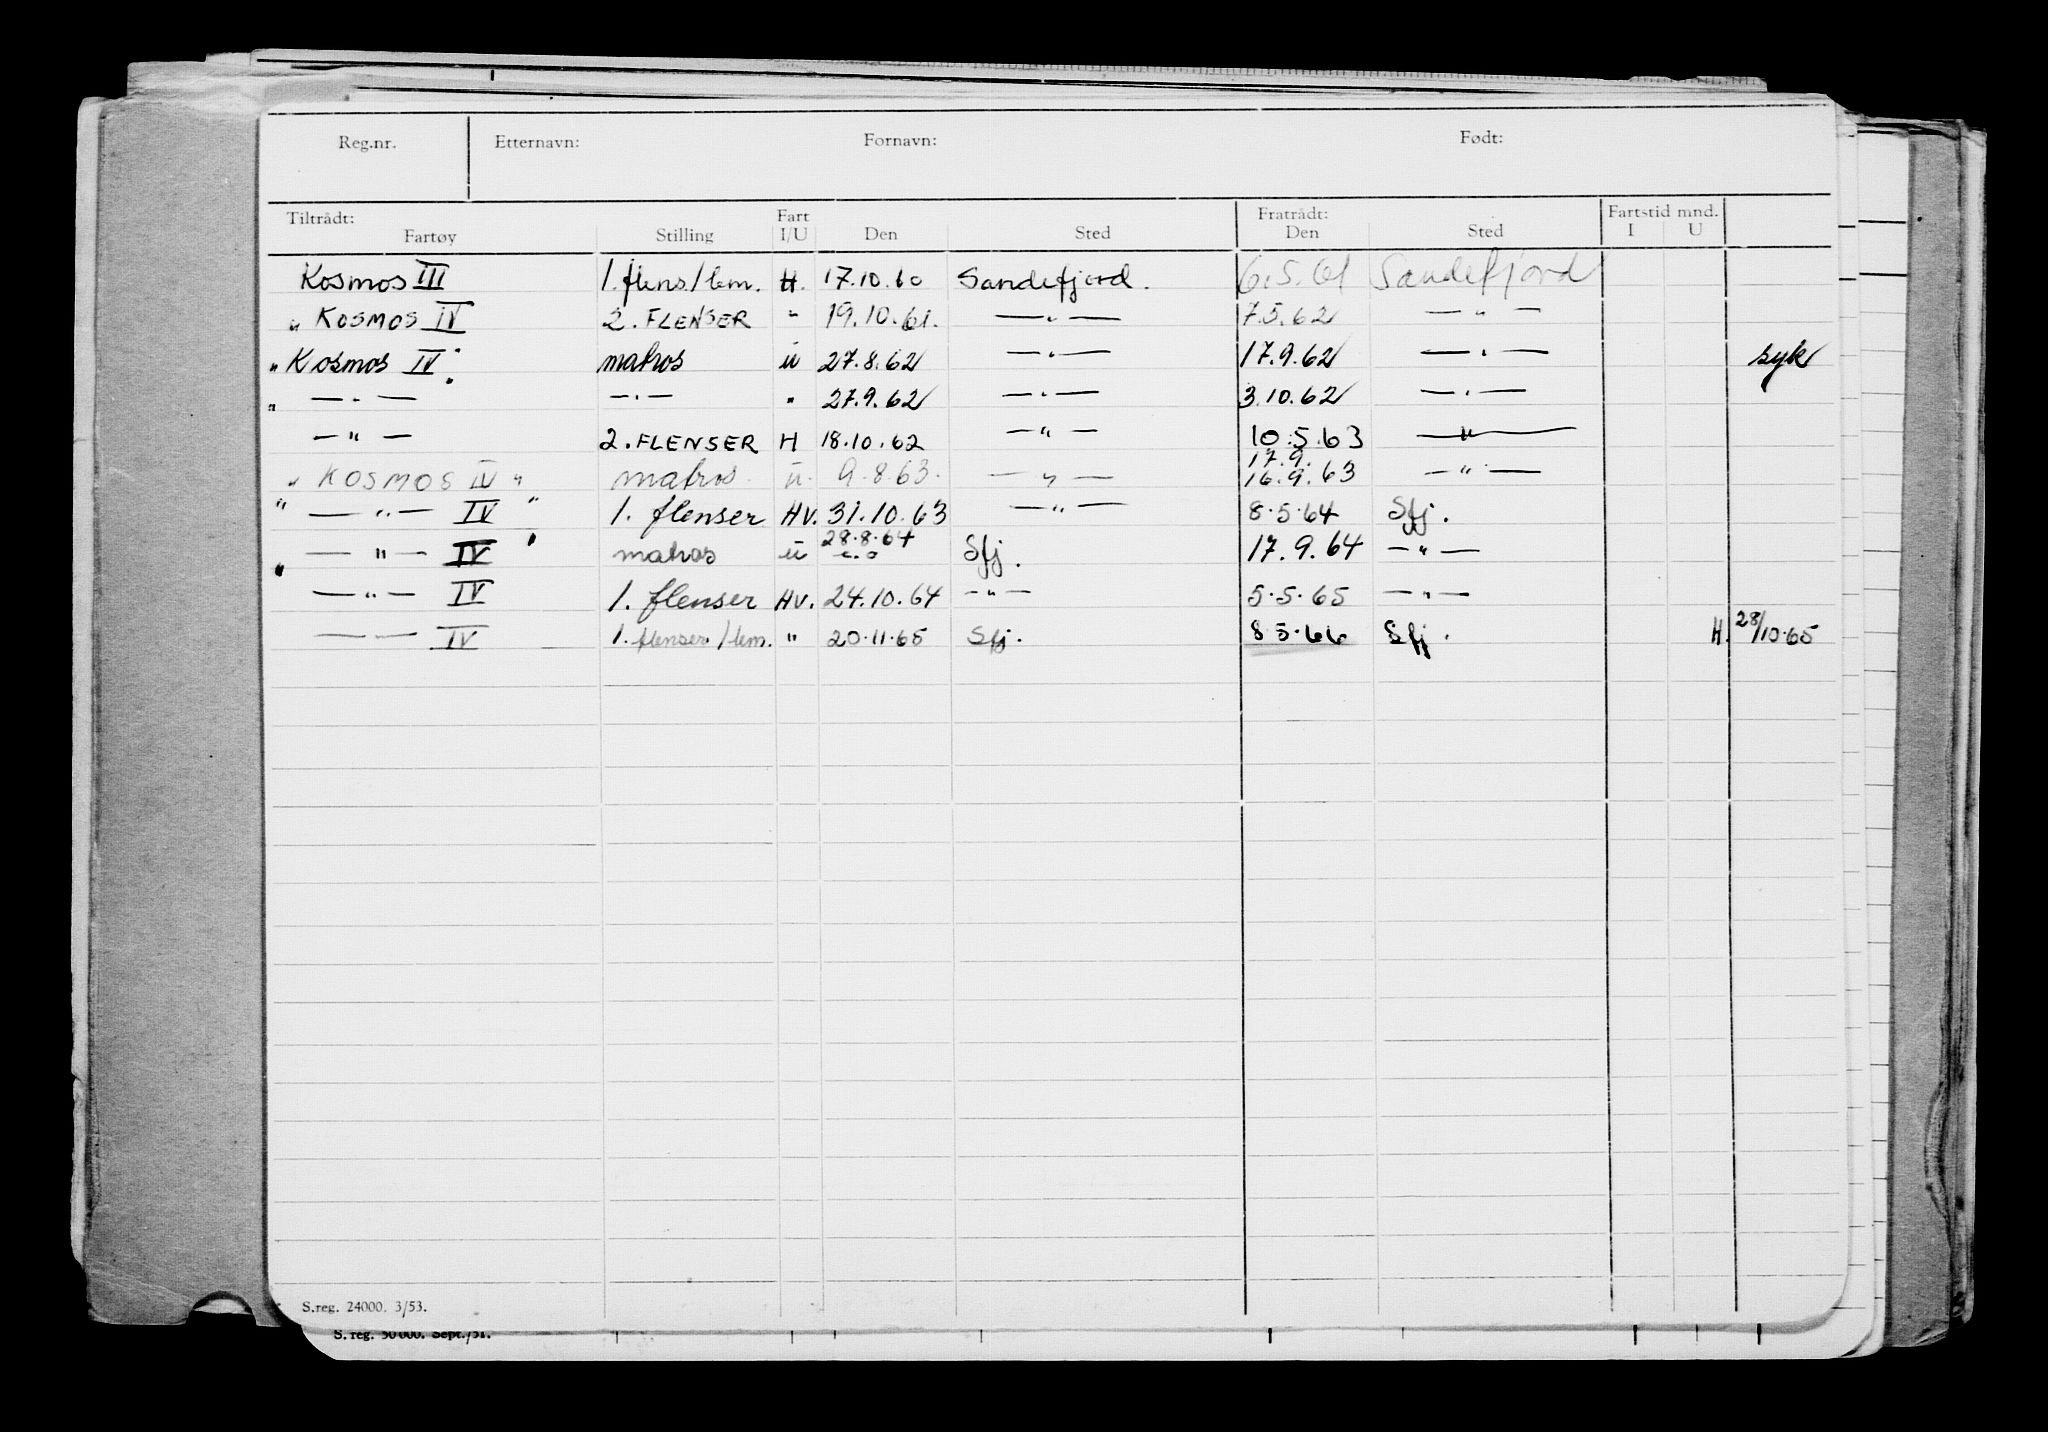 Reg.nr. Etternavn: Fornavn: Født:
Tiltrådt: Fart Fratrådt: Fartstid mnd.
Fartøy Stilling I/U Den Sted Den Sted I U
Kosmos III 1. flens/lem. H. 17.10.60 Sandefjord. 6.5.61 Sandefjord
" KOSMOS IV 2. FLENSER " 19.10.61. — " — 7.5.62 — " —
" Kosmos IV " matros u 27.8.62 — " — 17.9.62 — " — syk
" — " — " — " — " 27.9.62 — " — 3.10.62 — " —
— " — 2. FLENSER H 18.10.62 — " — 10.5.63 — " —
17.9.
" KOSMOS IV " matros u. 9.8.63. — " — 16.9.63 — " —
" — " — IV " 1. flenser Hv. 31.10.63 — " — 8.5.64 Sfj.
28.8.64
" — " — IV " matros u Sfj. 17.9.64 — " —
— " — IV 1. flenser Hv. 24.10.64 — " — 5.5.65 — " —
— " — IV 1. flenser/lem. " 20.11.65 Sfj. 8.5.66 Sfj. H. 28/10.65
S.reg. 24000. 3/53.
S. reg. 50000. Sept./51.